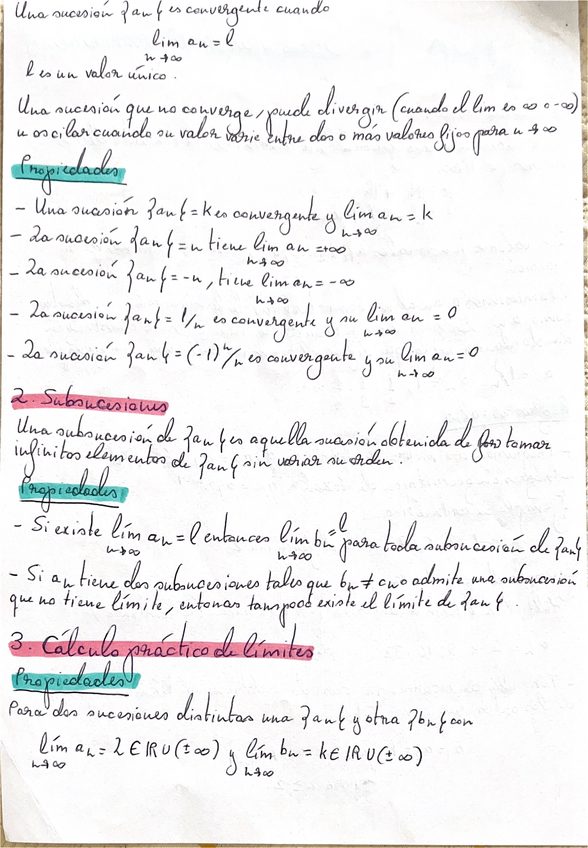 Una sucesión {an} es convergente cuando
lim an = l
n→∞
l es un valor único.
Una sucesión que no converge, puede divergir (cuando el lim es ∞ o -∞)
u oscilar cuando su valor varíe entre dos o más valores fijos para n→∞
Propiedades
- Una sucesión {an} = k es convergente y lim an = k
n→∞
- La sucesión {an} = n tiene lim an = +∞
n→∞
- La sucesión {an} = -n, tiene lim an = -∞
n→∞
- La sucesión {an} = 1/n es convergente y su lim an = 0
n→∞
- La sucesión {an} = (-1)^n/n es convergente y su lim an = 0
n→∞
2. Subsucesiones
Una subsucesión de {an} es aquella sucesión obtenida de tomar
infinitos elementos de {an} sin variar su orden.
Propiedades
- Si existe lím an = l entonces lím bn = l para toda subsucesión de {an}
n→∞ n→∞
- Si an tiene dos subsucesiones tales que bn ≠ cn o admite una subsucesión
que no tiene límite, entonces tampoco existe el límite de {an}.
3. Cálculo práctico de límites
Propiedades
Para dos sucesiones distintas una {an} y otra {bn} con
lím an = L ∈ IR U (±∞) y lím bn = k ∈ IR U (±∞)
n→∞ n→∞